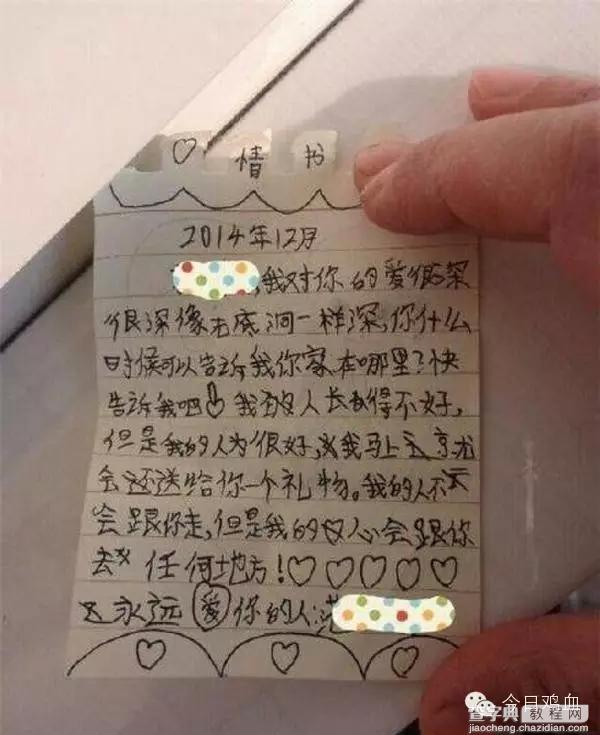 ♡ 情 书
2014年12月
,我对你的爱很深
很深像无底洞一样深,你什么
时候可以告诉我你家在哪里?快
告诉我吧 我人长得不好,
但是我的人为很好,我马上就
会还送给你一个礼物。我的人不
会跟你走,但是我的心会跟你
去 任何地方!♡♡♡♡♡
永远爱你的人:
♡ ♡ ♡
今日鸡血
查字典 教程网
jiaocheng.chazidian.com